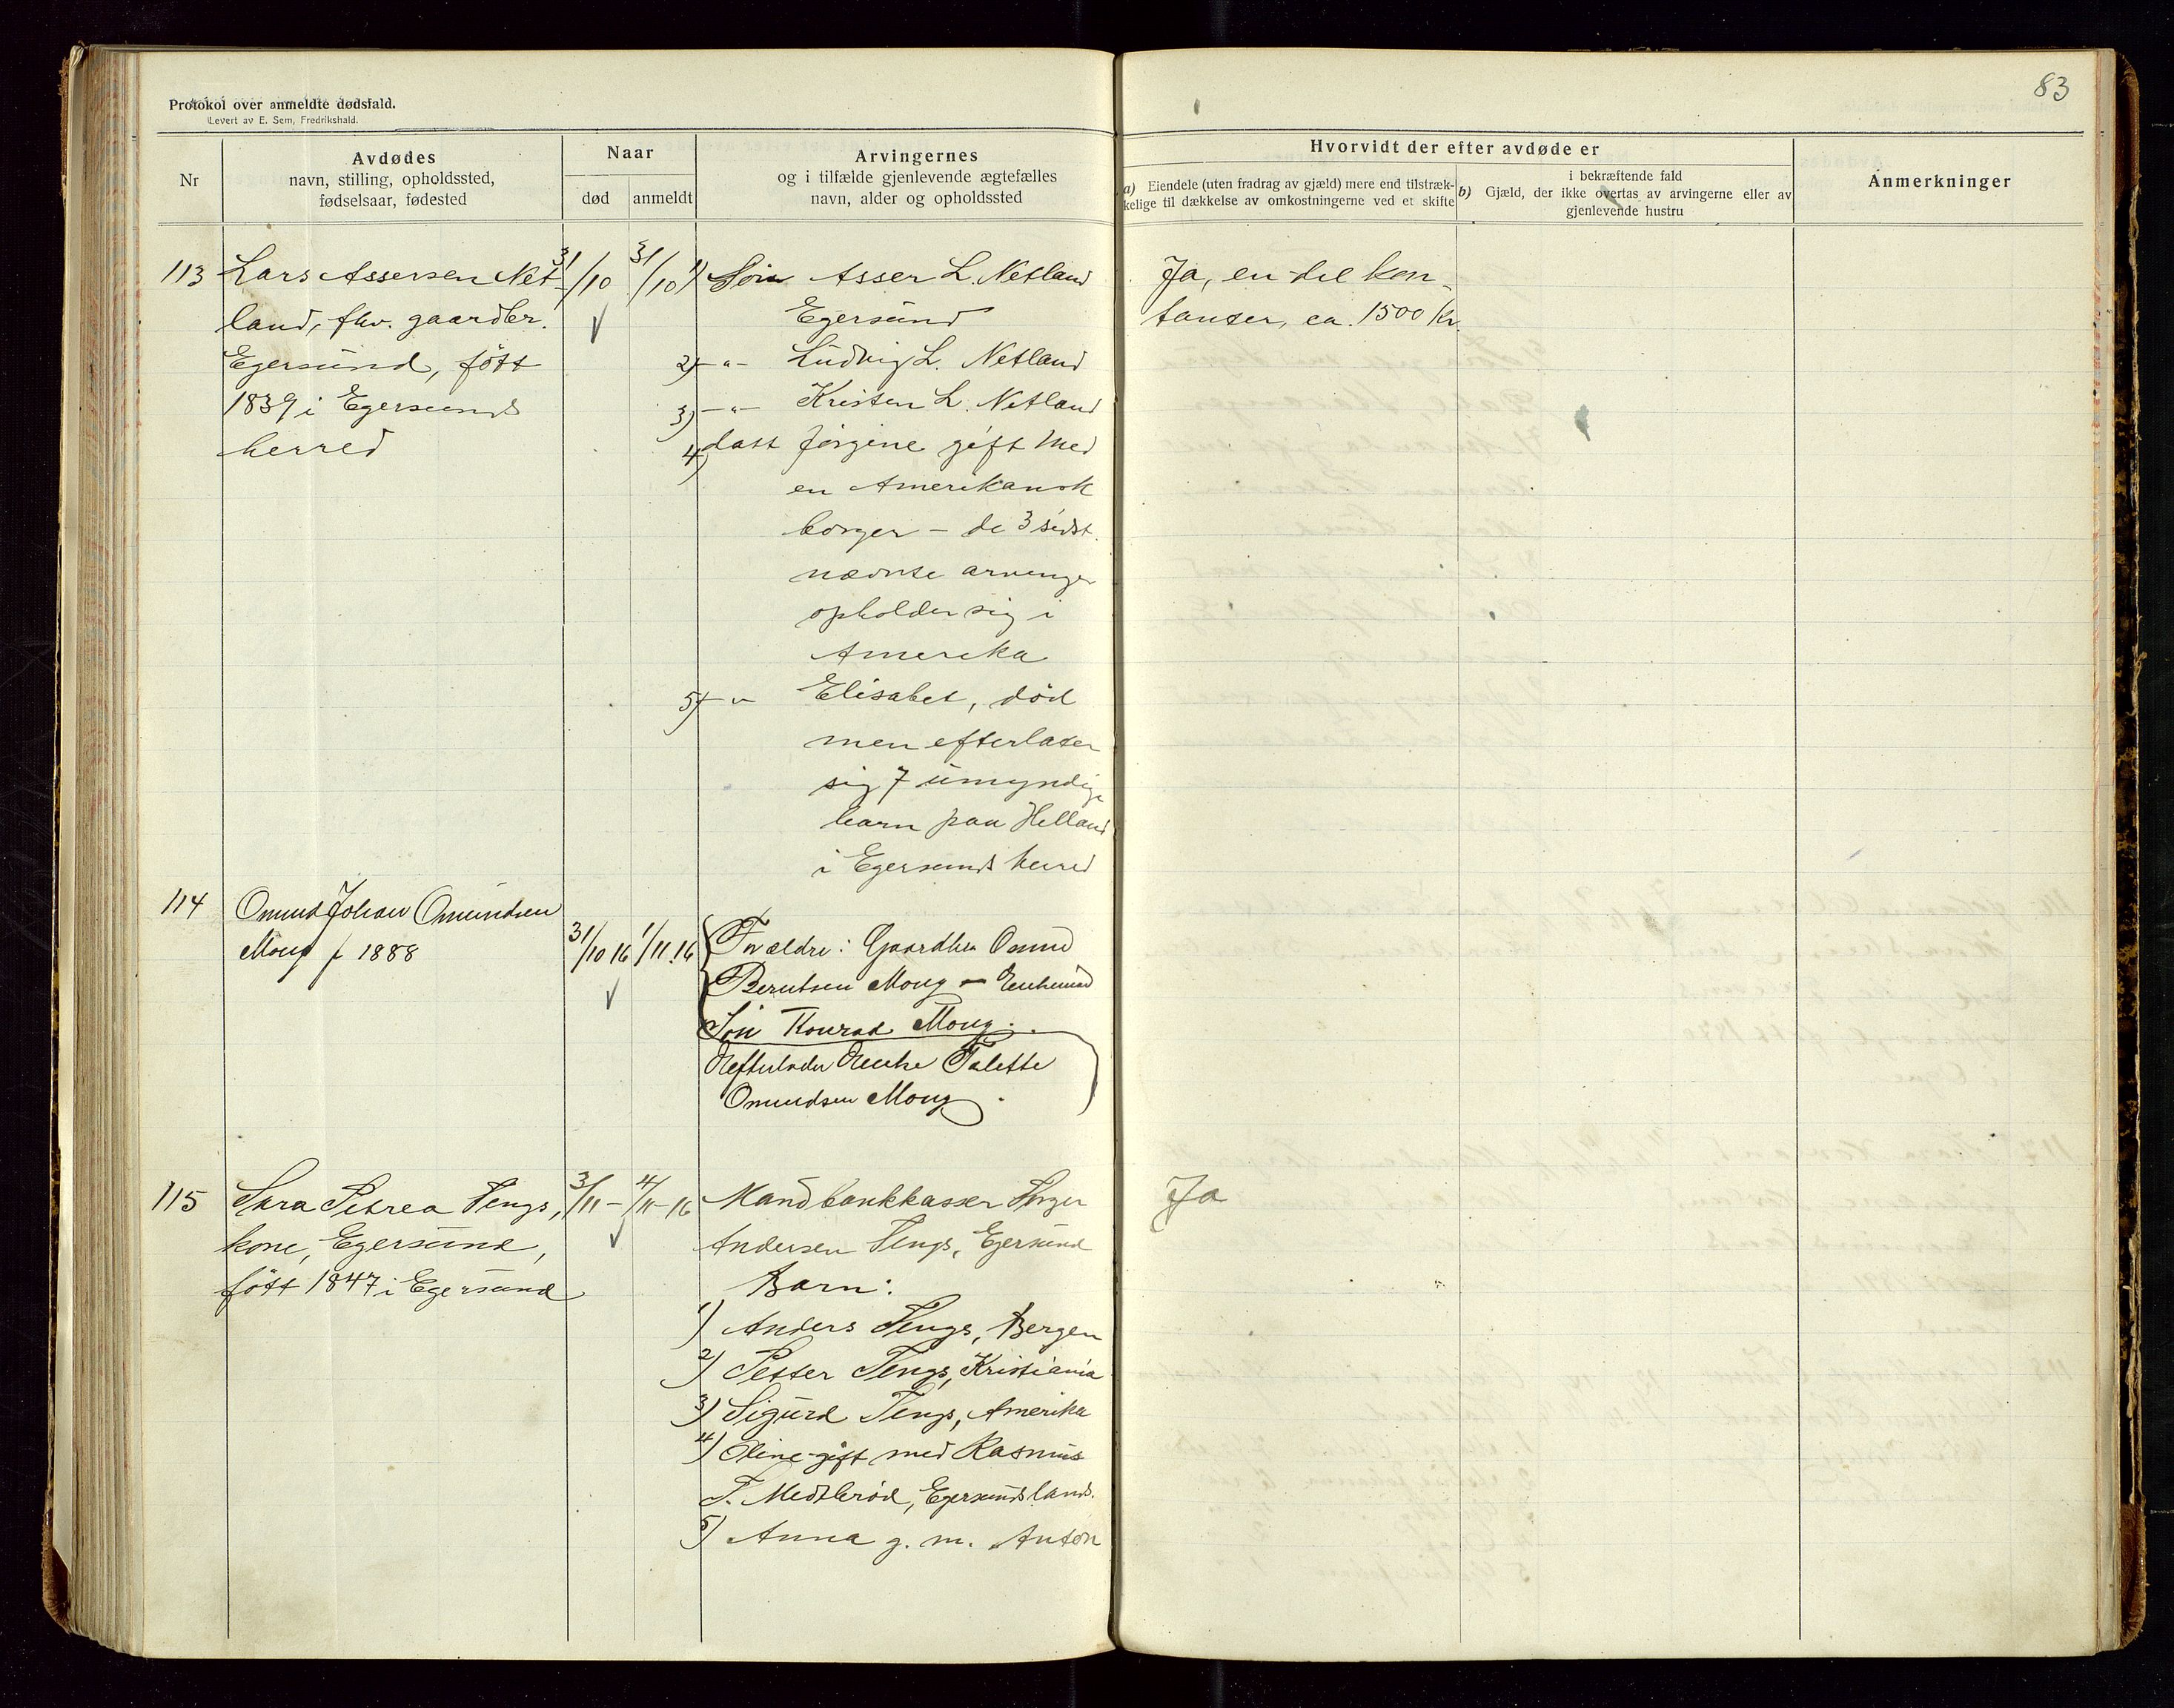 83
Protokol over anmeldte dødsfald.
Levert av E. Sem, Fredrikshald.
Nr
Avdødes
navn, stilling, opholdssted,
fødselsaar, fødested
Naar
død
anmeldt
Arvingernes
og i tilfælde gjenlevende ægtefælles
navn, alder og opholdssted
Hvorvidt der efter avdøde er
a) Eiendele (uten fradrag av gjæld) mere end tilstræk-
kelige til dækkelse av omkostningerne ved et skifte
i bekræftende fald
b) Gjæld, der ikke overtas av arvingerne eller av
gjenlevende hustru
Anmerkninger
113
Lars Assersen Net-
land, fhv. gaardbr.
Egersund, født
1839 i Egersunds
herred
31/10
31/10
1) Søn Asser L. Netland
Egersund
2) -"- Ludvig L. Netland
3) -"- Kristen L. Netland
4) datt Jørgine gift med
en Amerikansk
borger - de 3 sidst
nævnte arvinger
opholder sig i
Amerika
5) -"- Elisabet, død
men efterlater
sig 7 umyndige
barn paa Helland
i Egersunds herred
Ja, en del kon-
tanter, ca. 1500 Kr.
114
Omund Johan Omundsen
Moug f 1888
31/10 16
1/11.16
Forældre: Gaardbr Omund
Berntsen Moug - Enkemand
Søn Konrad Moug.
Efterlader Enke Talette
Omundsen Moug.
115
Sara Petrea Tengs,
kone, Egersund,
født 1847 i Egersund
3/11 -
4/11-16
Mand bankkasser Torger
Andersen Tengs, Egersund
Barn:
1) Anders Tengs, Bergen
2) Petter Tengs, Kristiania
3) Sigurd Tengs, Amerika
4) Oline gift med Rasmus
T. Medbrød, Egersunds lands.
5) Anna g. m. Anton
Ja